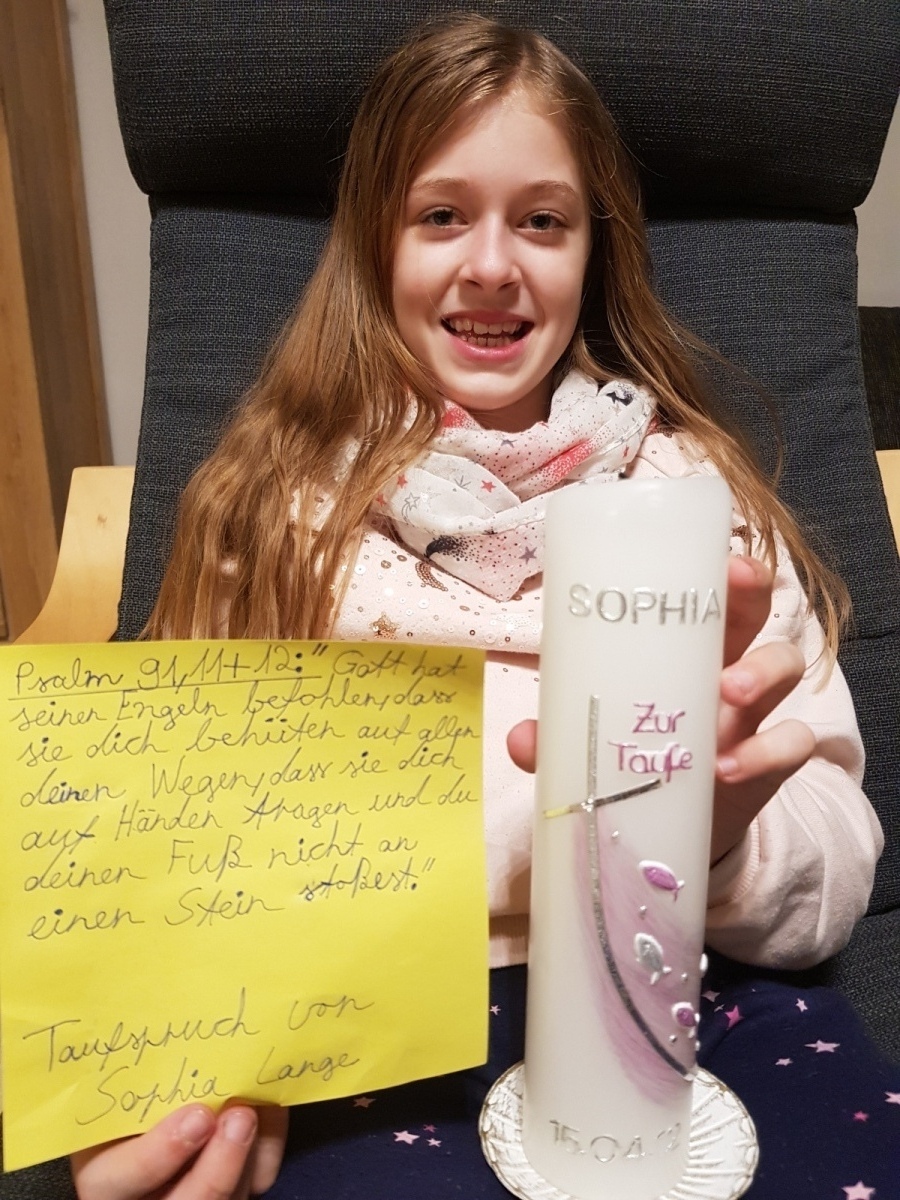 Psalm 91,11+12:" Gott hat
seinen Engeln befohlen, dass
sie dich behüten auf allen
deinen Wegen, dass sie dich
auf Händen tragen und du
deinen Fuß nicht an
einen Stein stoßest."
Taufspruch von
Sophia Lange
SOPHIA
Zur
Taufe
15.04.12